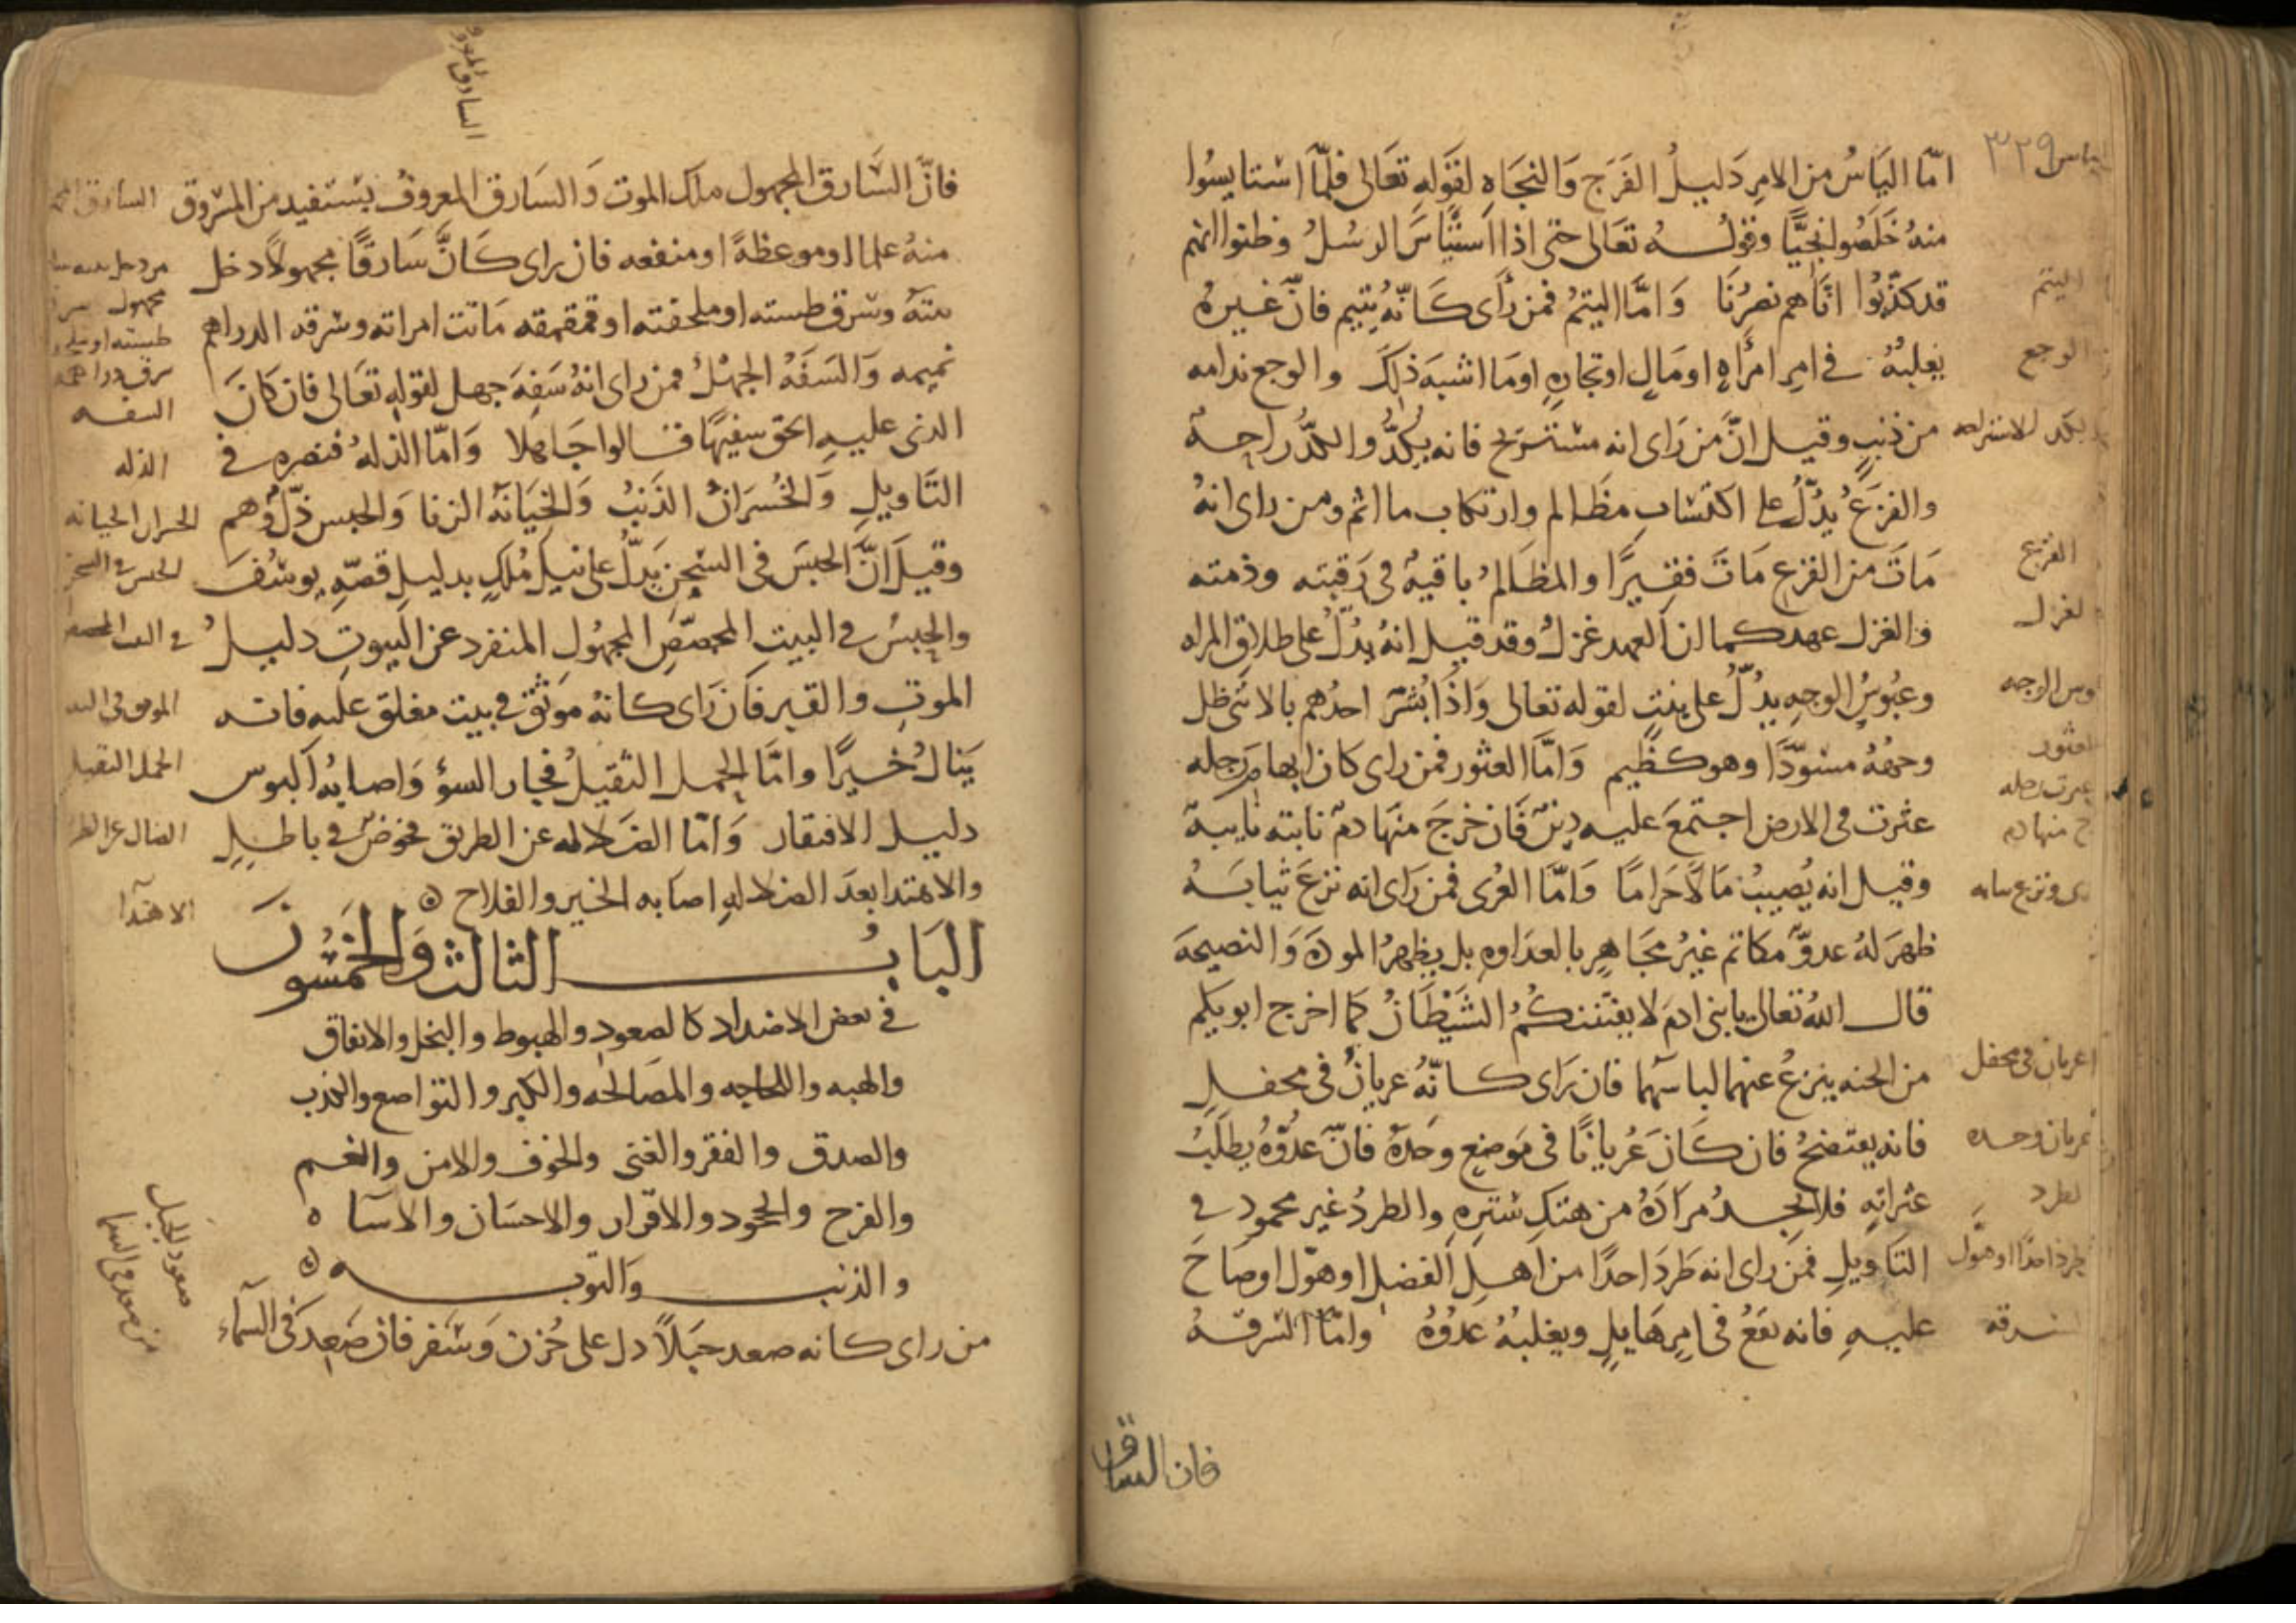 ٣٢٩
امّا اليَاسُ من الامرِ دَليلُ الفَرَجِ وَالنجَاهِ لقَولهِ تعَالى فلمّا استايسُوا
منهُ خَلَصُوا نجيًّا وقولُــهُ تعَالى حتى اذا استَيَاسَ الرسُلُ وظنوا انهم
قد كذّبُوا اتَاهم نصرُنَا وَامَّا اليتمُ فمن رأى كَانّهُ يتيم فانّ غيرهُ
يغلبُهُ في امرِ امرأهِ او مَالٍ او تجارهِ او مَا اشبهَ ذلكَ والوجع ندامه
من ذنبٍ وقيل انّ من رَاى انه مستريح فانه يكدُّ والكدُّ راحةٌ
والفزَعُ يدُلُّ على اكتسابِ مظَالم وارتكاب ماثم ومن راى انهُ
مَاتَ من الفزعِ مَاتَ فقيرًا والمظَالمُ باقيةٌ في رَقبته وذمته
والغزل عهد كما ان العهد غزلٌ وقد قيل انهُ يدُلُّ على طلاقِ المراه
وعبُوسُ الوجهِ يدُلُّ على بنتٍ لقوله تعالى وَاذا بُشّرَ احدُهم بالانثى ظل
وجهُهُ مسْوَدًّا وهو كظيم وَامَّا العثور فمن راى كان ابهامَ رجله
عثرت في الارض اجتمعَ عليه دينٌ فَان خرجَ منهَا دمٌ نابته نايبةٌ
وقيل انه يُصيبُ مَالاً حَرامًا وَامّا العُرى فمن رَاى انه نزعَ ثيابَــهُ
ظهرَ لهُ عدوٌّ مكاتم غيرُ مجَاهرٍ بالعدَاوهِ بل يظهرُ الموده وَالنصيحه
قال اللهُ تعالى يا بنى ادمَ لا يفتننكُمُ الشَّيْطَانُ كما اخرج ابويكم
من الجنه ينزعُ عنهما لباسَهما فان رَاى كــانّهُ عريانٌ في محفلٍ
فانه يفتضحُ فان كَانَ عُريانًا في مَوضعٍ وحدَهُ فانّ عدُوّهُ يطلبُ
عثراتِهِ فلا يجدُ مرَادَهُ من هتكِ سترِهِ والطردُ غير محمودٍ في
التَاويلِ فمن راى انه طَردَ احدًا من اهلِ الفضلِ او هوّل او صَاحَ
عليهِ فانه يقعُ في امرٍ هَايلٍ ويغلبُهُ عدُوّهُ وامّا السّرقَــهُ
اليتم
الوجع
الفزع
الغزل
العثور
عريان في محفل
عريان وحده
الطرد
طرد احدًا او هوّل
السرقه
فان السارق
فانّ السَّارق المجهول ملَك الموت وَالسَارق المعروفُ يَستفيد من المسروق
منهُ علما او موعظهً او منفعه فان راى كَانَّ سَارقًا مجهولاً دخل
بيتهُ وسَرق طسته او ملحفته او قمقمه مَاتت امراته وسرقه الدراهم
نميمه وَالسَفَهُ الجهْلُ فمن راى انهُ سَفِهَ جهل لقوله تعَالى فان كانَ
الذى عليهِ الحق سفيهًا قــالوا جَاهلا وَامّا الذلهُ فنصره في
التَاويلِ وَالخُسرَانُ الذَنبُ وَالخيَانةُ الزنا وَالحبس ذُلٌّ وهم
وقيلَ انّ الحبسَ في السّجنِ يَدلُّ على نيلِ مُلكٍ بدليلِ قصّهِ يوسُفَ
والحبسُ في البيت المجصّصِ المجهُول المنفرد عن البيوتِ دليلُ
الموتِ والقبرِ فان رَاى كانهُ مُوثَقٌ في بيت مغلق عليه فانه
يَنالُ خيرًا وامّا الحمل الثقيلُ فجار السوءِ وَاصابهُ البوس
دليل الافتقار وَامّا الضَلاله عن الطريق فخوضٌ في باطلٍ
والاهتدا بعدَ الضلالهِ اصابه الخير والفلاح
البَابُ الثالث وَالخمسُونَ
في بعض الاضداد كالصعود والهبوط والبخل والانفاق
والهبه والحاجه والمصَالحه والكبر والتواضع والكذب
والصدق والفقر والغنى والخوف والامن والغم
والفرح والجحود والاقرار والاحسَان والاسآ
والذنب وَالتوبــه
من راى كانه صعد جبَلاً دل على حُزن وَسَفر فان صَعِدَ في السّماءِ
السارق المعروف
السفه
الذله
الخسران الخيانه
الحمل الثقيل
الاهتدآ
صعود الجبل
من صعد في السما